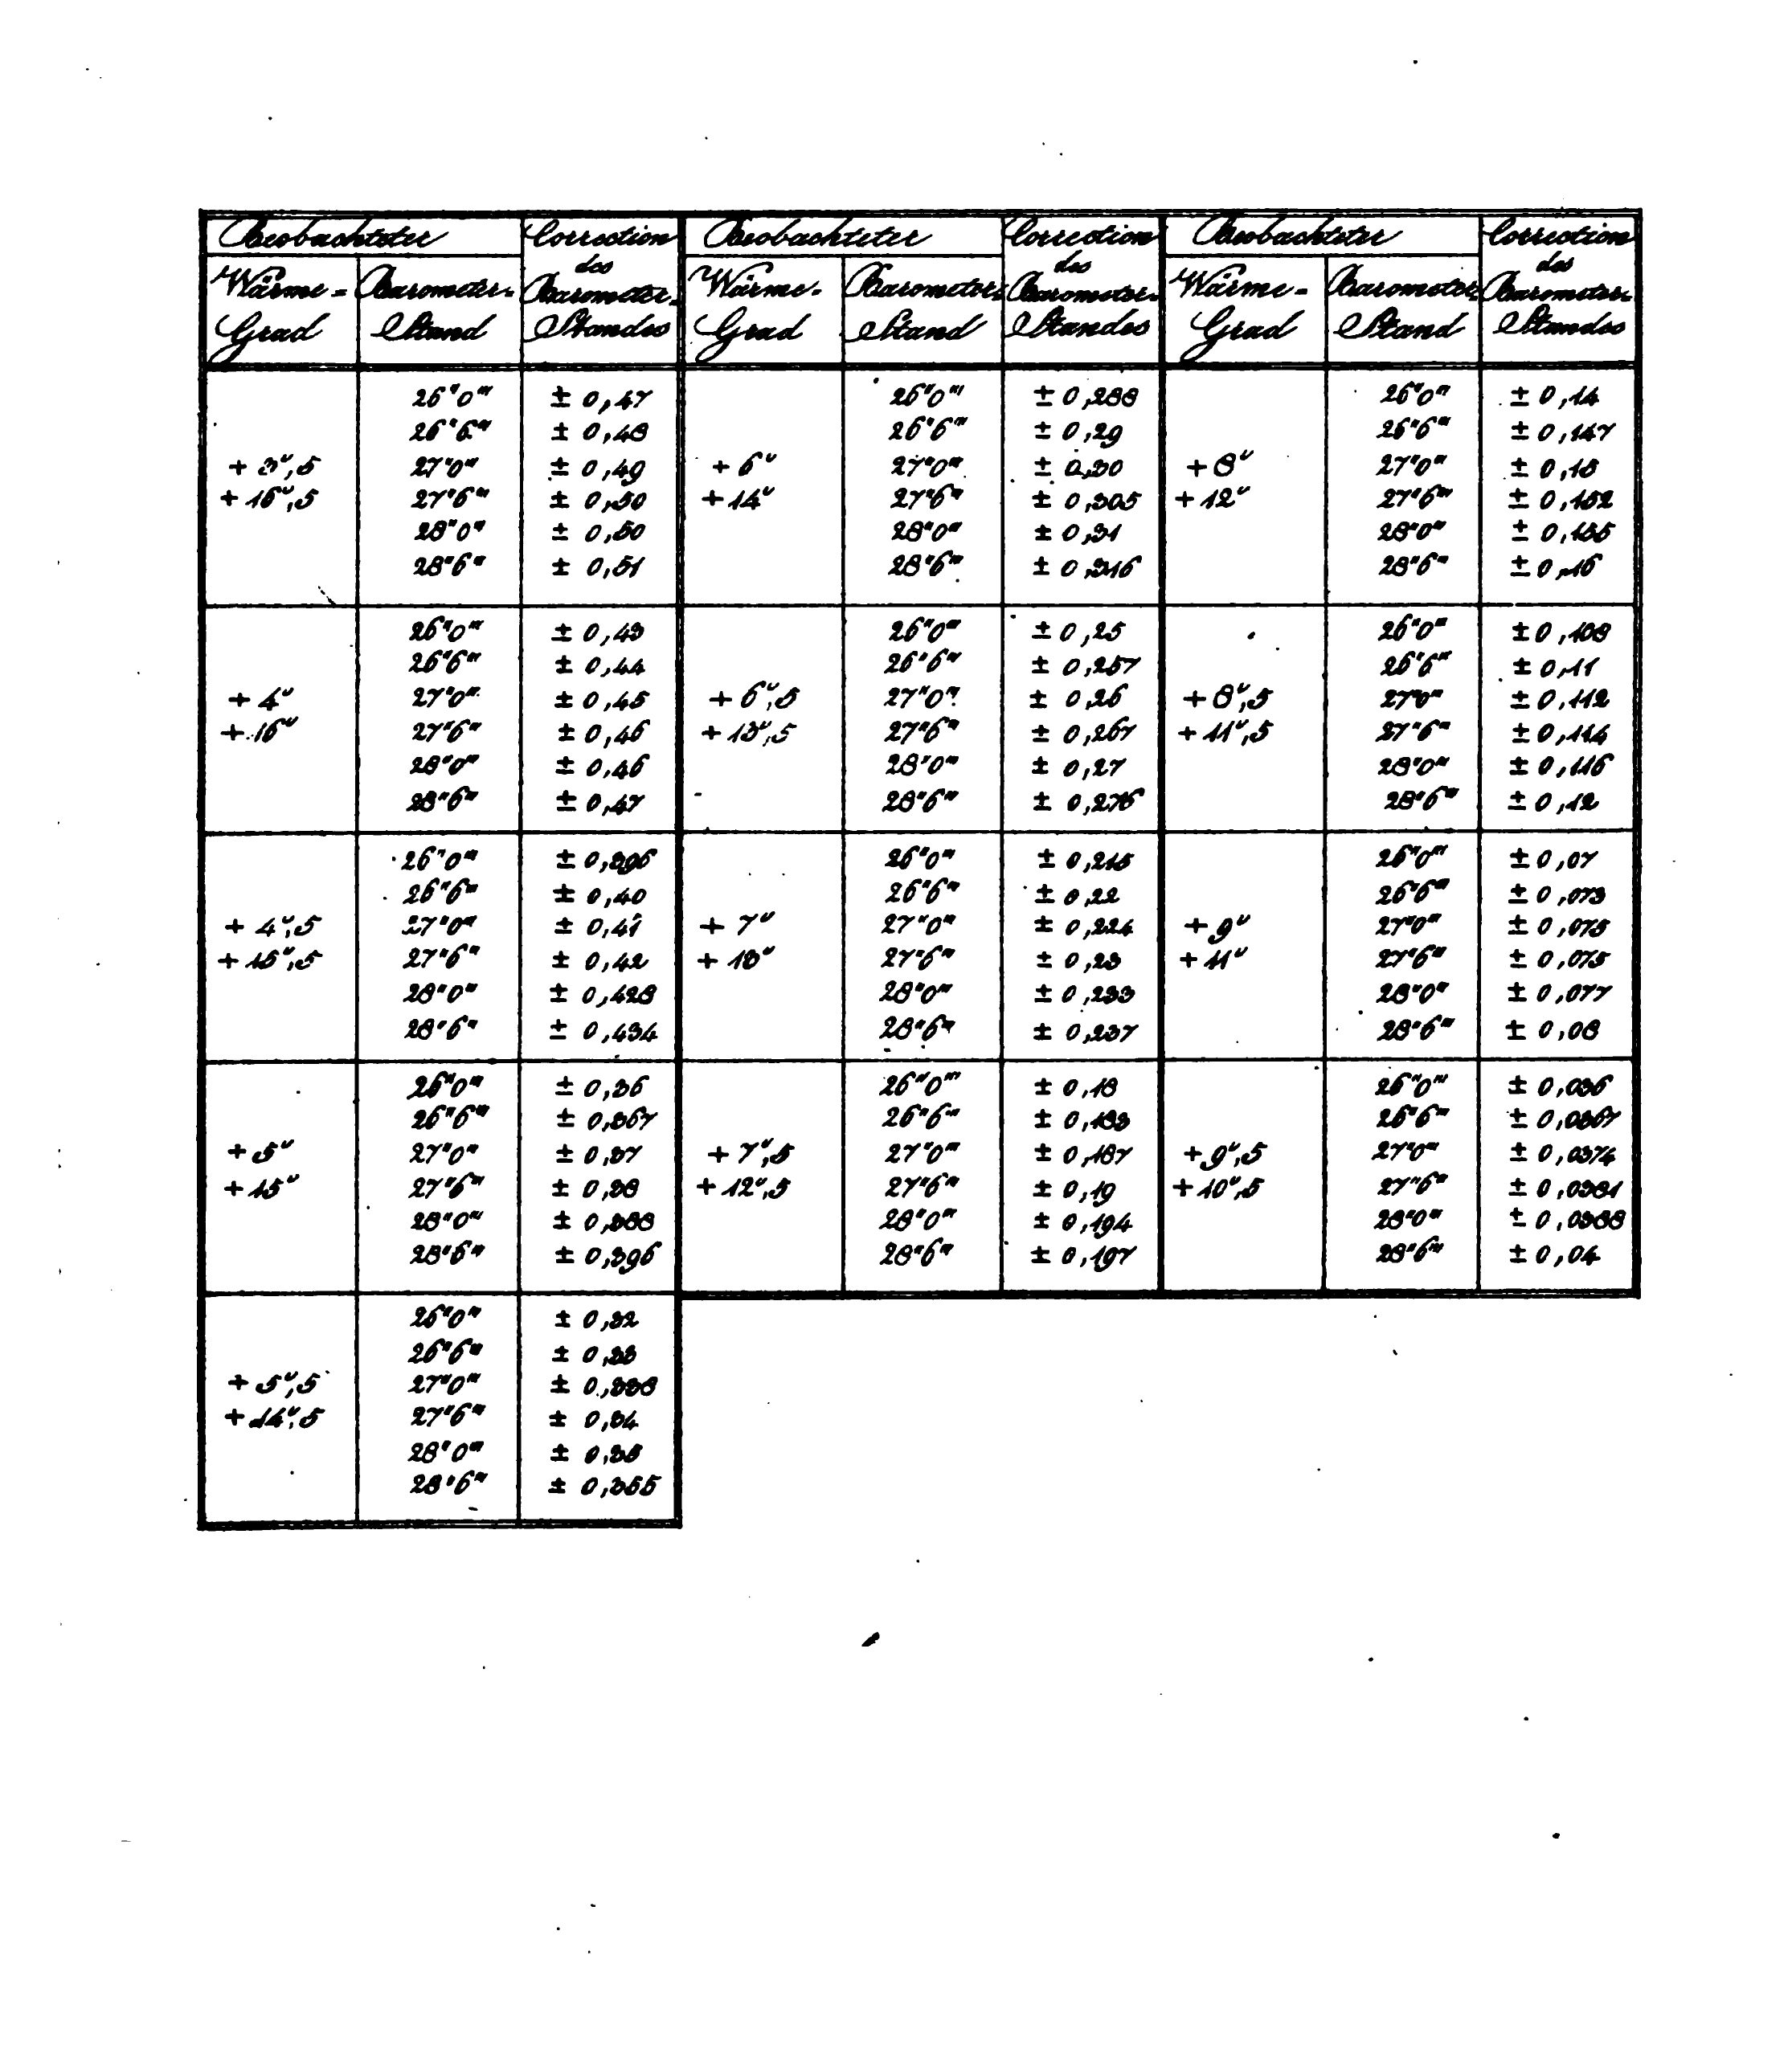 Beobachteter Correction Beobachteter Correction Beobachteter Correction
des des des
Wärme- Barometer- Barometer- Wärme- Barometer- Barometer- Wärme- Barometer- Barometer-
Grad Stand Standes Grad Stand Standes Grad Stand Standes
26"0''' ± 0,47 26"0''' ± 0,288 26"0''' ± 0,14
26"6''' ± 0,48 26"6''' ± 0,29 26"6''' ± 0,147
+ 3°,5 27"0''' ± 0,49 + 6° 27"0''' ± 0,30 + 8° 27"0''' ± 0,15
+ 16°,5 27"6''' ± 0,50 + 14° 27"6''' ± 0,305 + 12° 27"6''' ± 0,152
28"0''' ± 0,50 28"0''' ± 0,31 28"0''' ± 0,155
28"6''' ± 0,51 28"6''' ± 0,316 28"6''' ± 0,16
26"0''' ± 0,43 26"0''' ± 0,25 26"0''' ± 0,108
26"6''' ± 0,44 26"6''' ± 0,257 26"6''' ± 0,11
+ 4° 27"0''' ± 0,45 + 6°,5 27"0''' ± 0,26 + 8°,5 27"0''' ± 0,112
+ 16° 27"6''' ± 0,46 + 13°,5 27"6''' ± 0,267 + 11°,5 27"6''' ± 0,114
28"0''' ± 0,46 28"0''' ± 0,27 28"0''' ± 0,116
28"6''' ± 0,47 28"6''' ± 0,276 28"6''' ± 0,12
26"0''' ± 0,396 26"0''' ± 0,215 26"0''' ± 0,07
26"6''' ± 0,40 26"6''' ± 0,22 26"6''' ± 0,073
+ 4°,5 27"0''' ± 0,41 + 7° 27"0''' ± 0,224 + 9° 27"0''' ± 0,075
+ 15°,5 27"6''' ± 0,42 + 13° 27"6''' ± 0,23 + 11° 27"6''' ± 0,075
28"0''' ± 0,428 28"0''' ± 0,233 28"0''' ± 0,077
28"6''' ± 0,434 28"6''' ± 0,237 28"6''' ± 0,08
26"0''' ± 0,36 26"0''' ± 0,18 26"0''' ± 0,036
26"6''' ± 0,367 26"6''' ± 0,183 26"6''' ± 0,0367
+ 5° 27"0''' ± 0,37 + 7°,5 27"0''' ± 0,187 + 9°,5 27"0''' ± 0,0374
+ 15° 27"6''' ± 0,38 + 12°,5 27"6''' ± 0,19 + 10°,5 27"6''' ± 0,0381
28"0''' ± 0,388 28"0''' ± 0,194 28"0''' ± 0,0388
28"6''' ± 0,396 28"6''' ± 0,197 28"6''' ± 0,04
26"0''' ± 0,32
26"6''' ± 0,33
+ 5°,5 27"0''' ± 0,338
+ 14°,5 27"6''' ± 0,34
28"0''' ± 0,35
28"6''' ± 0,355